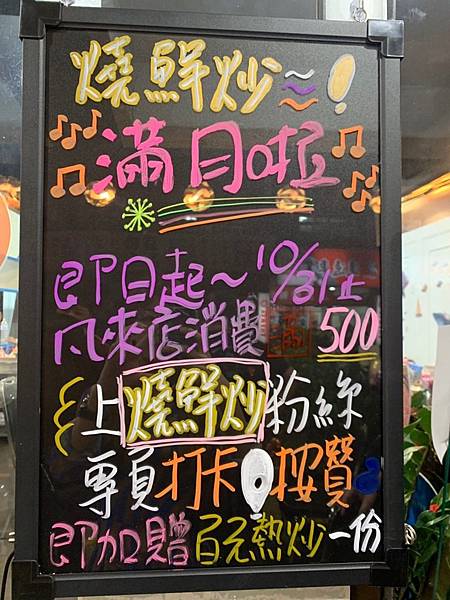 燒鮮炒~!
滿月啦
即日起~10/31止
凡來店消費滿500
上燒鮮炒粉絲
專頁打卡按讚
即加贈百元熱炒一份